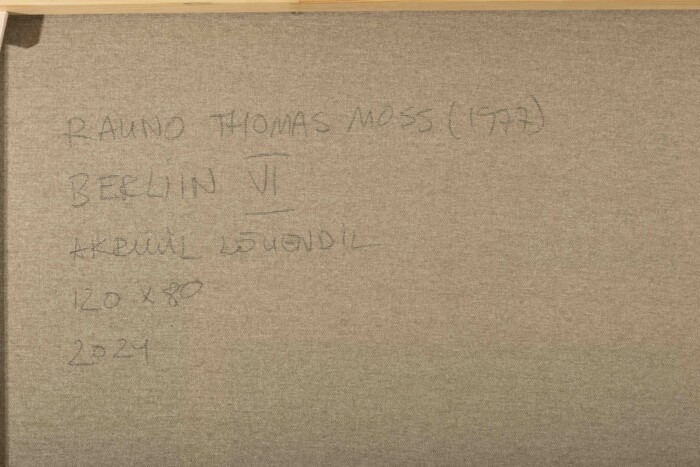 RAUNO THOMAS MOSS (1977)
BERLIIN VI
AKRÜÜL LÕUENDIL
120 x 80
2024